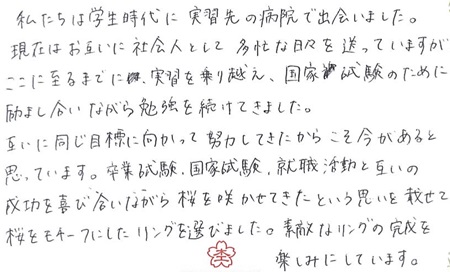 私たちは学生時代に実習先の病院で出会いました。
現在はお互いに社会人として多忙な日々を送っていますが
ここに至るまでに、実習を乗り越え、国家試験のために
励まし合いながら勉強を続けてきました。
互いに同じ目標に向かって努力してきたからこそ今があると
思っています。卒業試験、国家試験、就職活動と互いの
成功を喜び合いながら桜を咲かせてきたという思いを載せて
桜をモチーフにしたリングを選びました。素敵なリングの完成を
楽しみにしています。